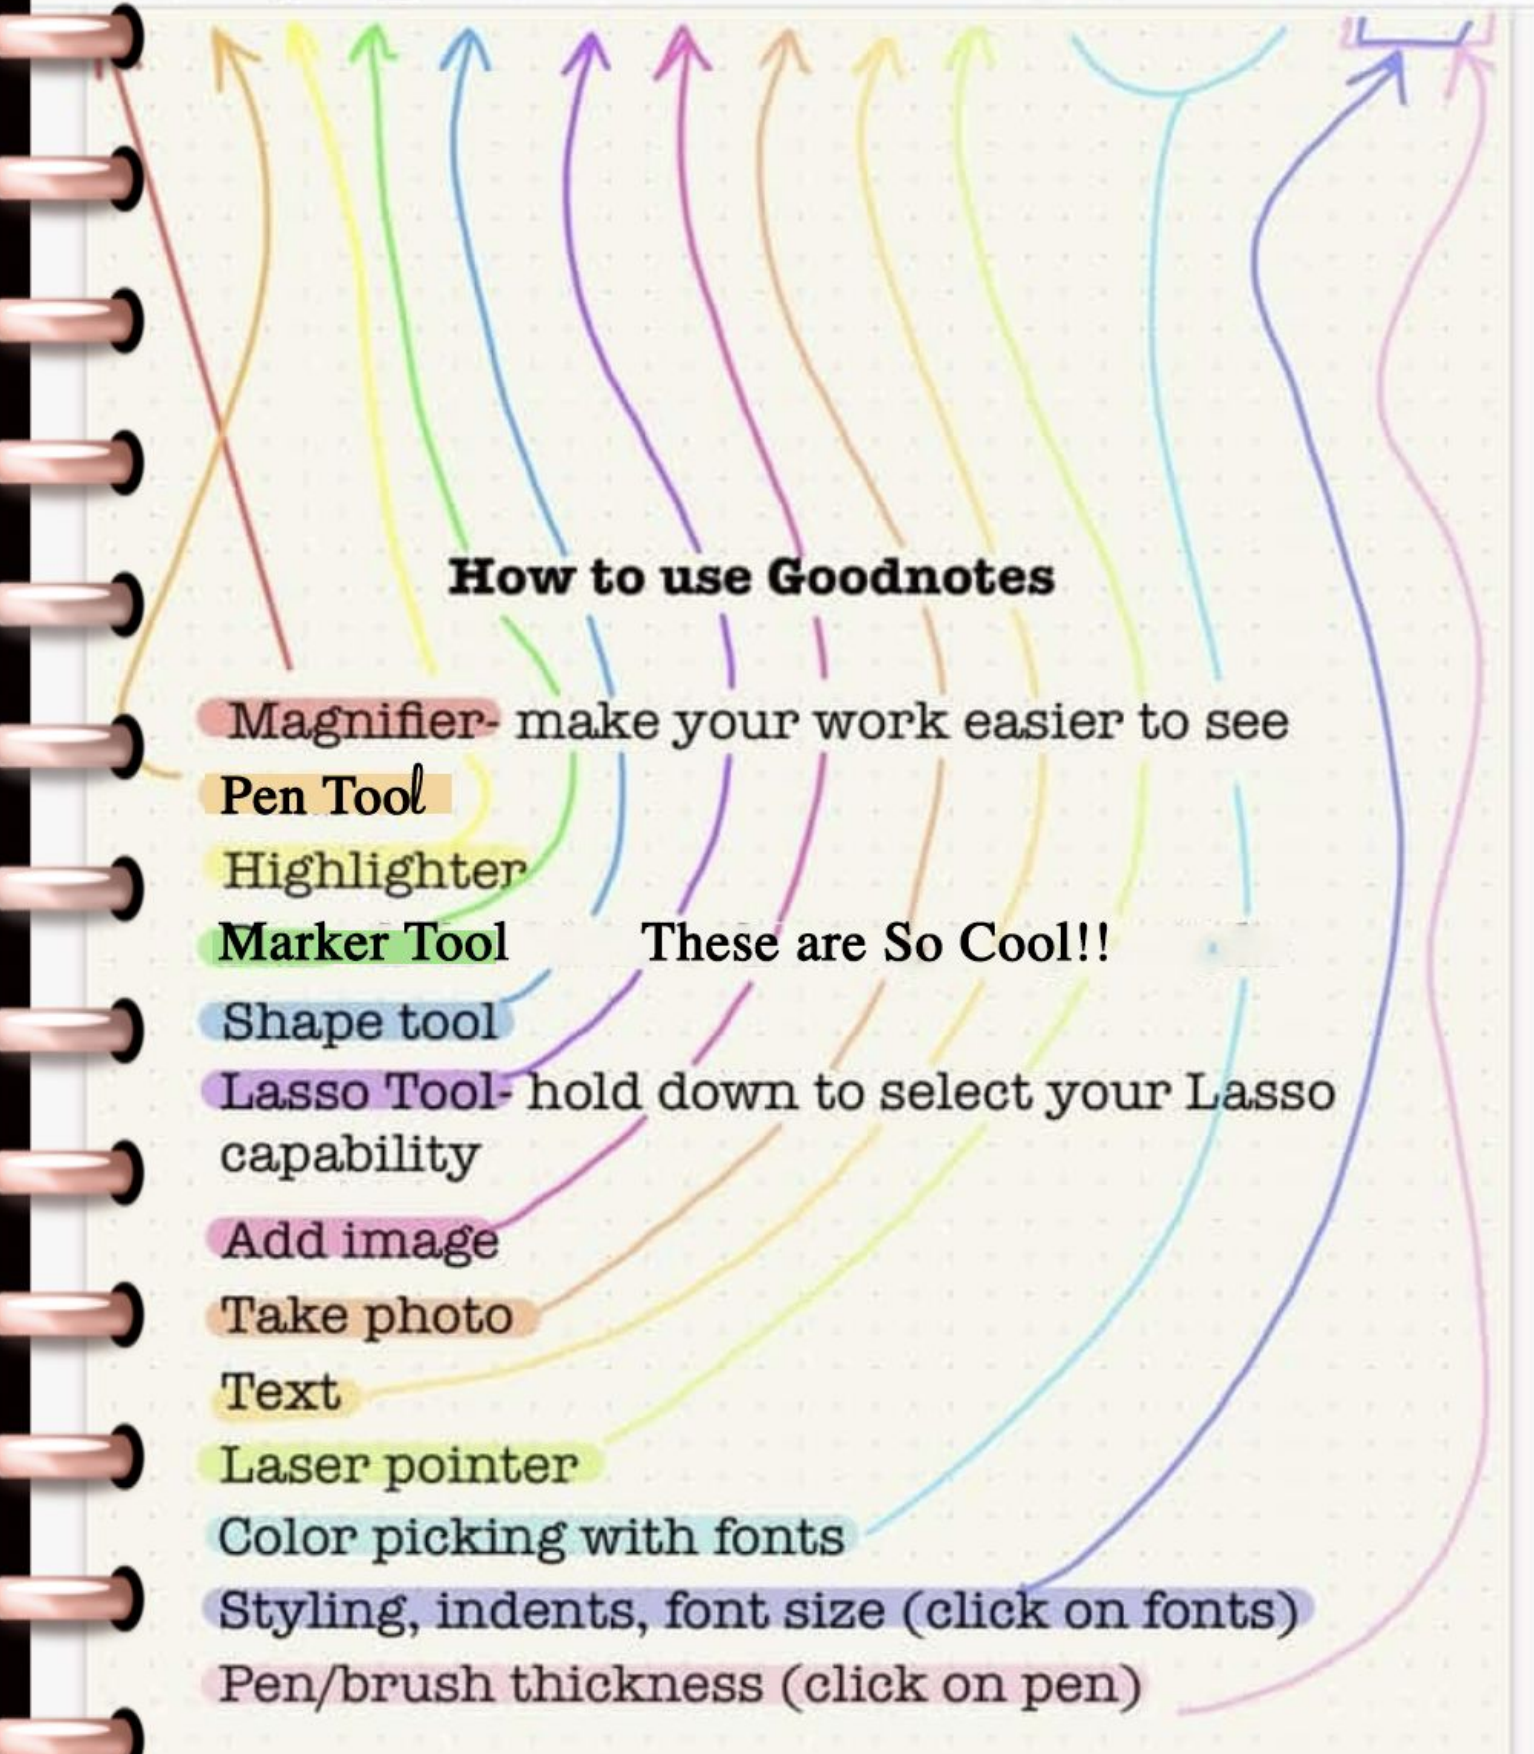 How to use Goodnotes
Magnifier- make your work easier to see
Pen Tool
Highlighter
Marker Tool These are So Cool!!
Shape tool
Lasso Tool- hold down to select your Lasso
capability
Add image
Take photo
Text
Laser pointer
Color picking with fonts
Styling, indents, font size (click on fonts)
Pen/brush thickness (click on pen)